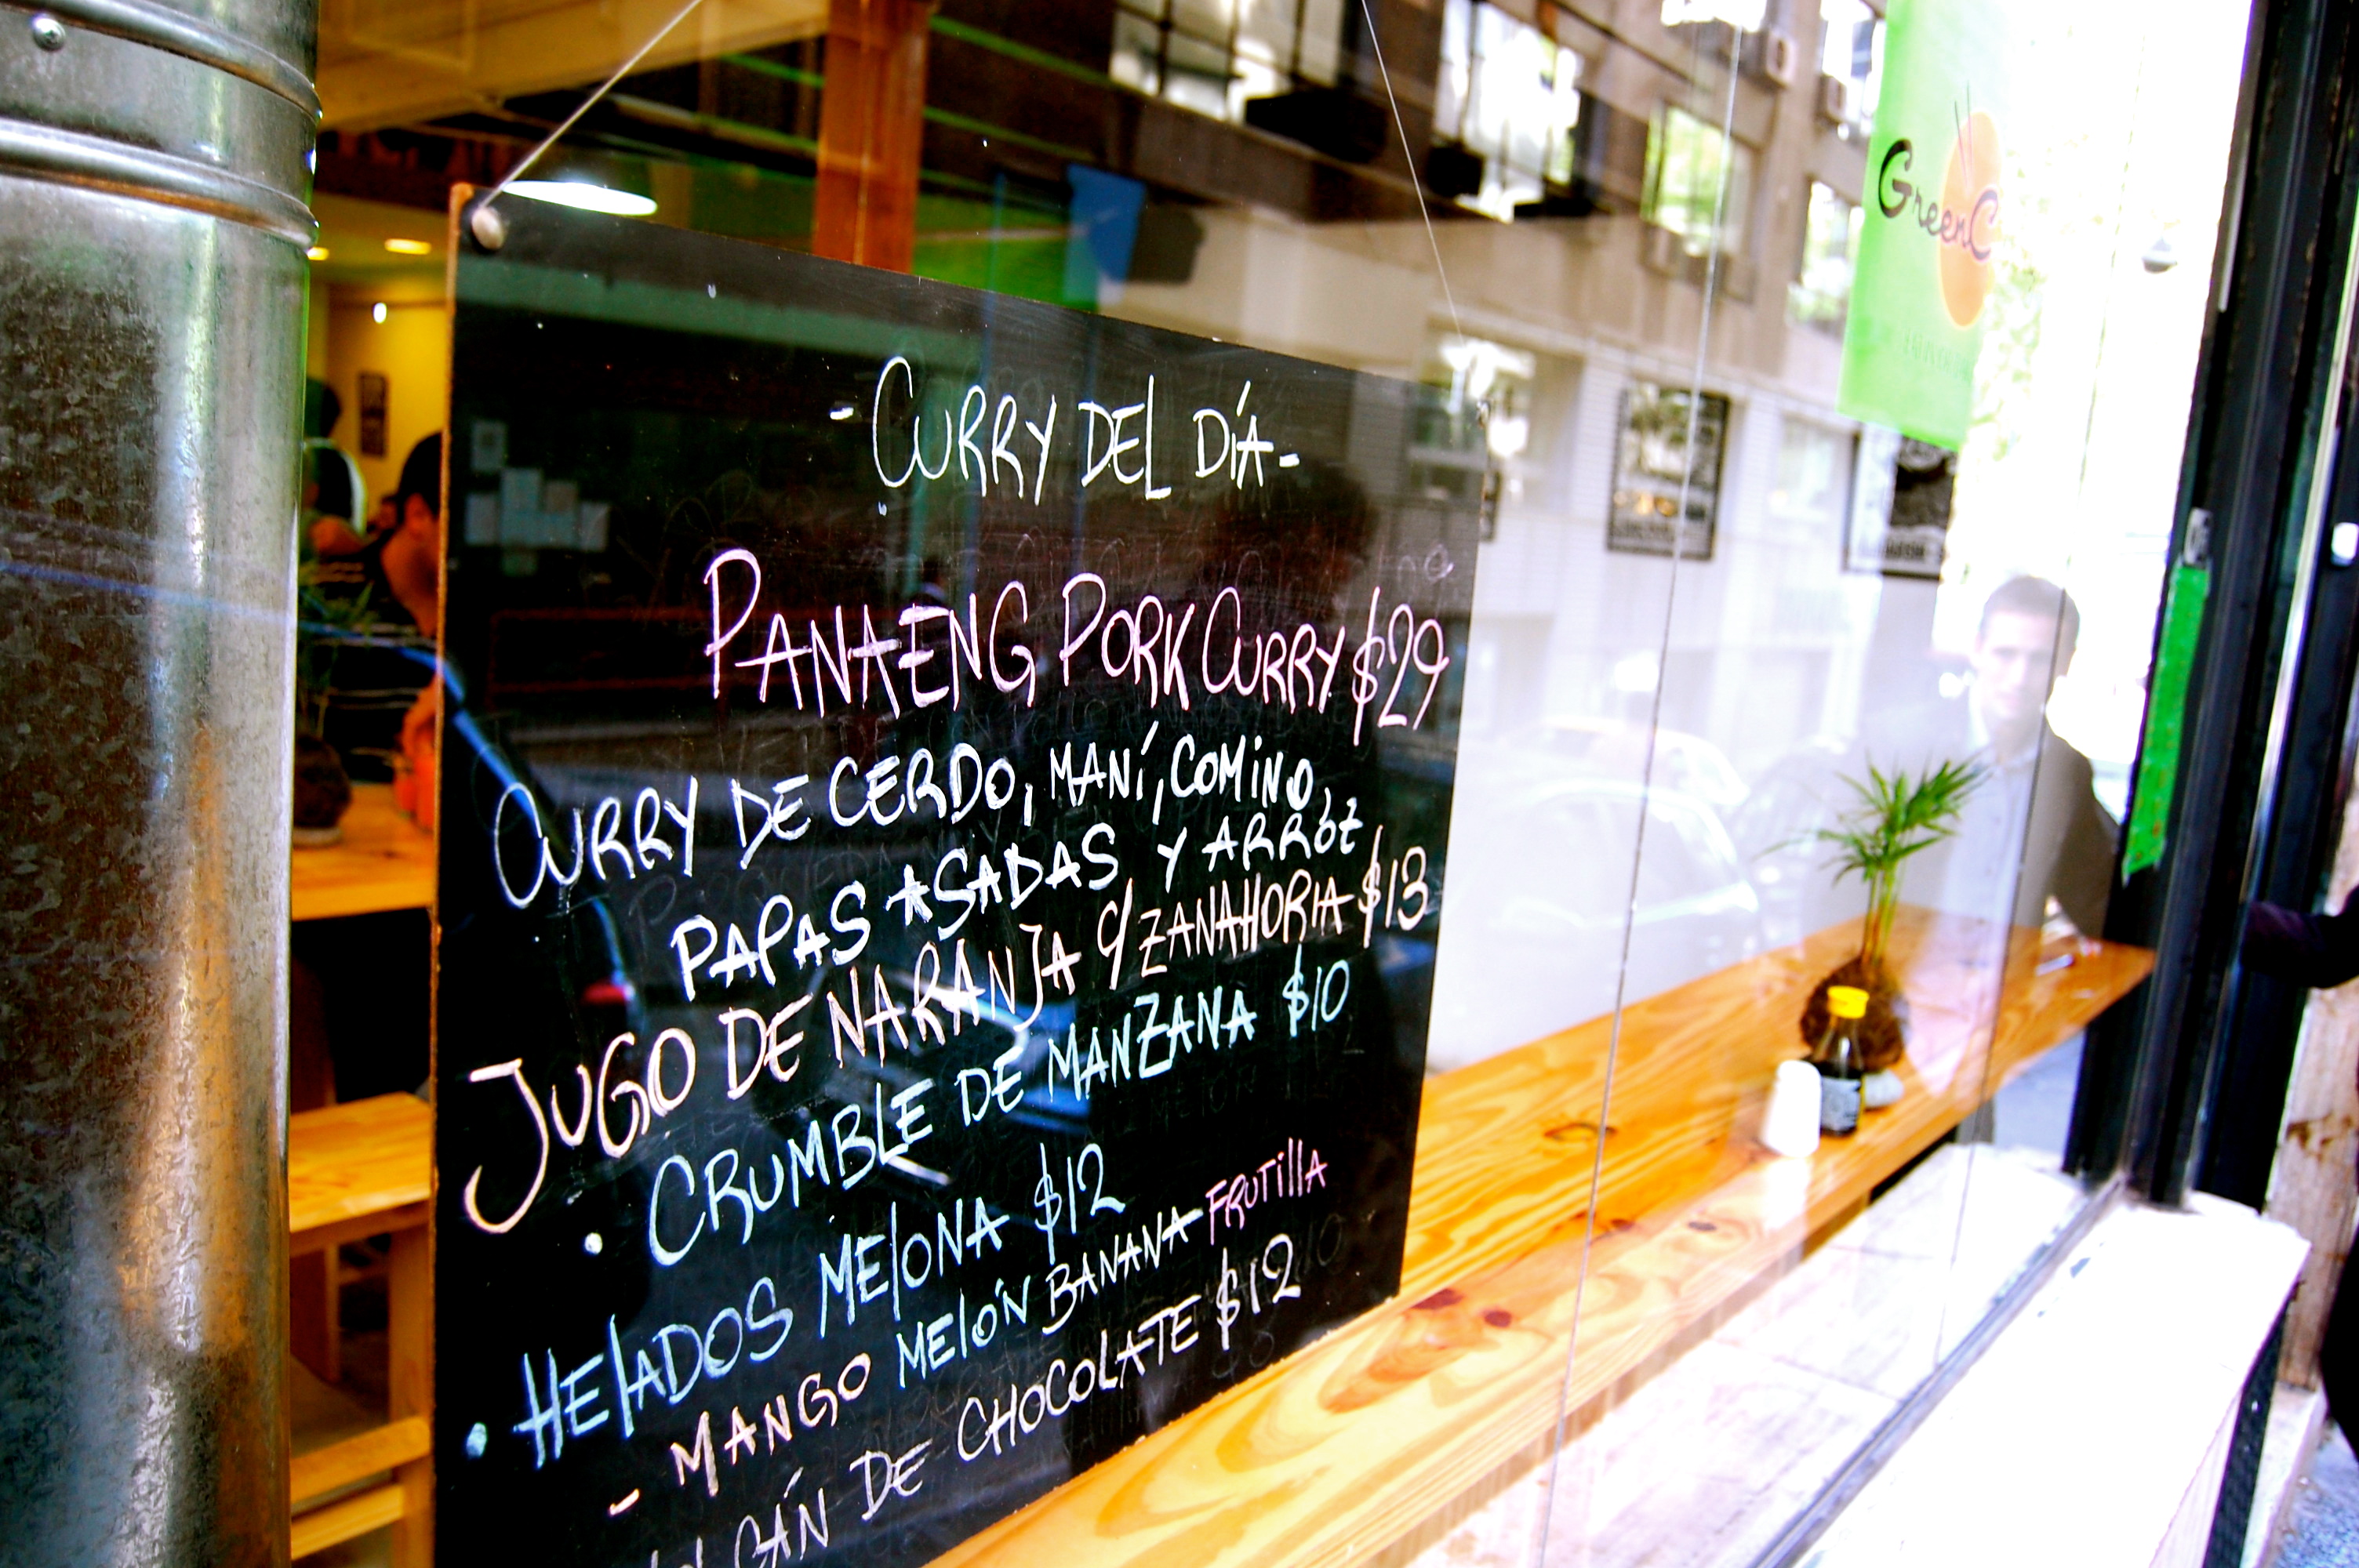 - CURRY DEL DÍA -
PANAENG PORK CURRY $29
CURRY DE CERDO, MANÍ, COMINO,
PAPAS ASADAS Y ARROZ
JUGO DE NARANJA C/ZANAHORIA $13
• CRUMBLE DE MANZANA $10
• HELADOS MELONA $12
- MANGO MELÓN BANANA-FRUTILLA
DE CHOCOLATE $12
GreenC